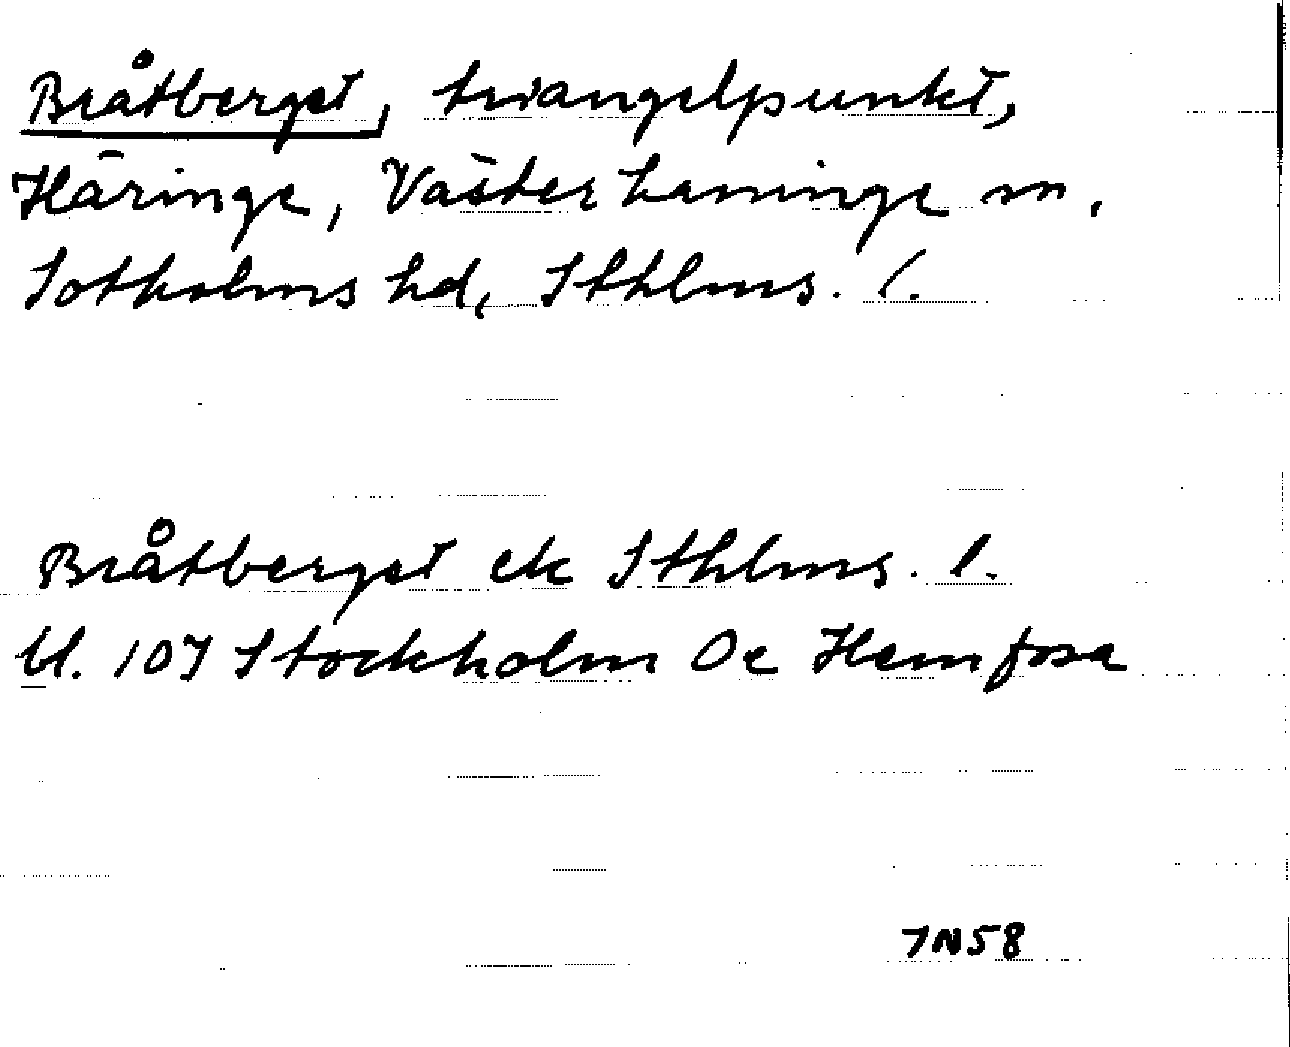 Bråtberget, triangelpunkt,
Häringe, Västerhaninge sn,
Sotholms hd, Sthlms. l.
Bråtberget ek Sthlms. l.
bl. 107 Stockholm Oc Hemfosa
7N58